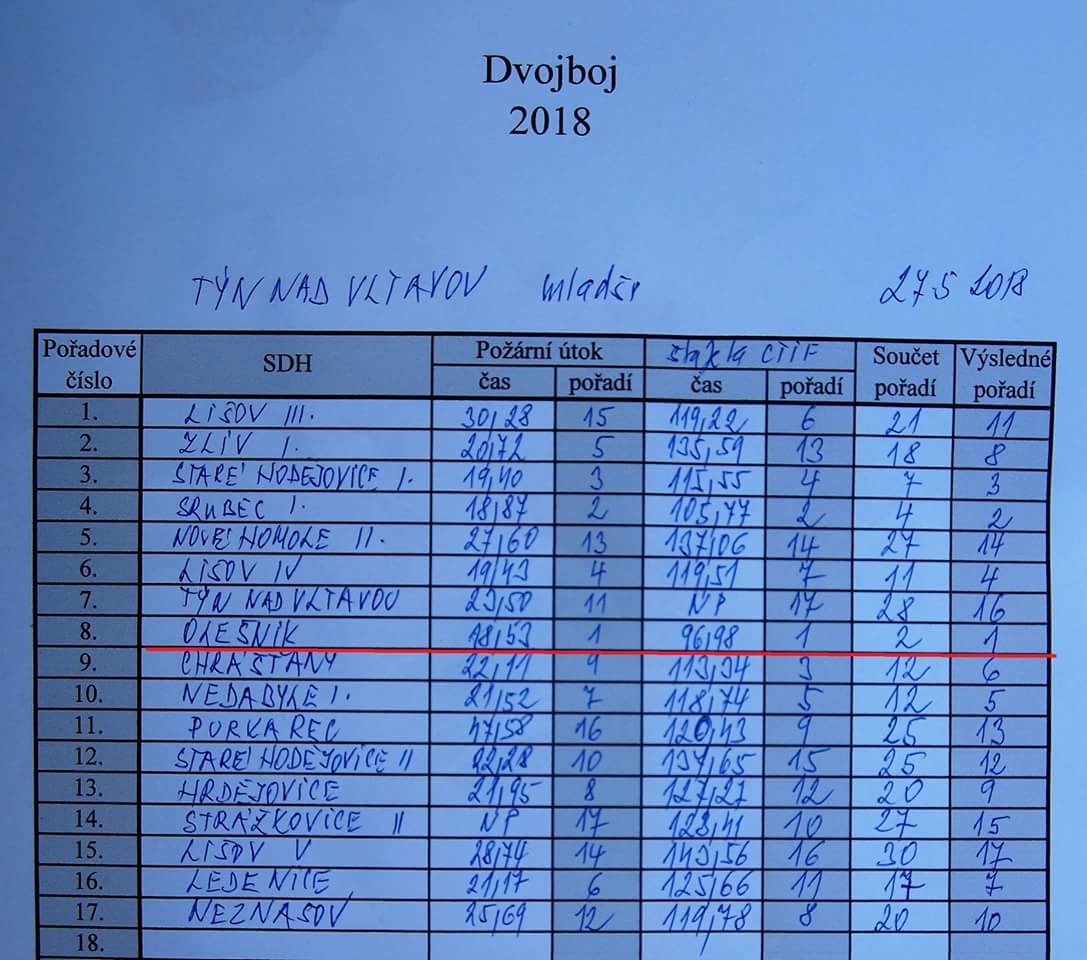 Dvojboj
2018
TÝN NAD VLTAVOU mladší 27.5 2018
Pořadové číslo SDH Požární útok štafeta CTIF Součet pořadí Výsledné pořadí
čas pořadí čas pořadí
1. LIŠOV III. 30,28 15 119,22 6 21 11
2. ZLIV I. 20,72 5 135,59 13 18 8
3. STARÉ HODĚJOVICE I. 19,40 3 115,55 4 7 3
4. SRUBEC I. 18,87 2 105,77 2 4 2
5. NOVÉ HOMOLE II. 27,60 13 137,06 14 27 14
6. LIŠOV IV 19,43 4 119,51 7 11 4
7. TÝN NAD VLTAVOU 23,50 11 NP 17 28 16
8. OLEŠNÍK 18,53 1 96,98 1 2 1
9. CHRÁŠŤANY 22,11 9 113,34 3 12 6
10. NEDABYLE I. 21,52 7 118,74 5 12 5
11. PURKAREC 47,58 16 120,43 9 25 13
12. STARÉ HODĚJOVICE II 22,28 10 137,65 15 25 12
13. HRDĚJOVICE 21,95 8 127,27 12 20 9
14. STRÁŽKOVICE II NP 17 123,41 10 27 15
15. LIŠOV V 28,74 14 143,56 16 30 17
16. LEDENICE 21,17 6 125,66 11 17 7
17. NEZNAŠOV 25,69 12 119,78 8 20 10
18.